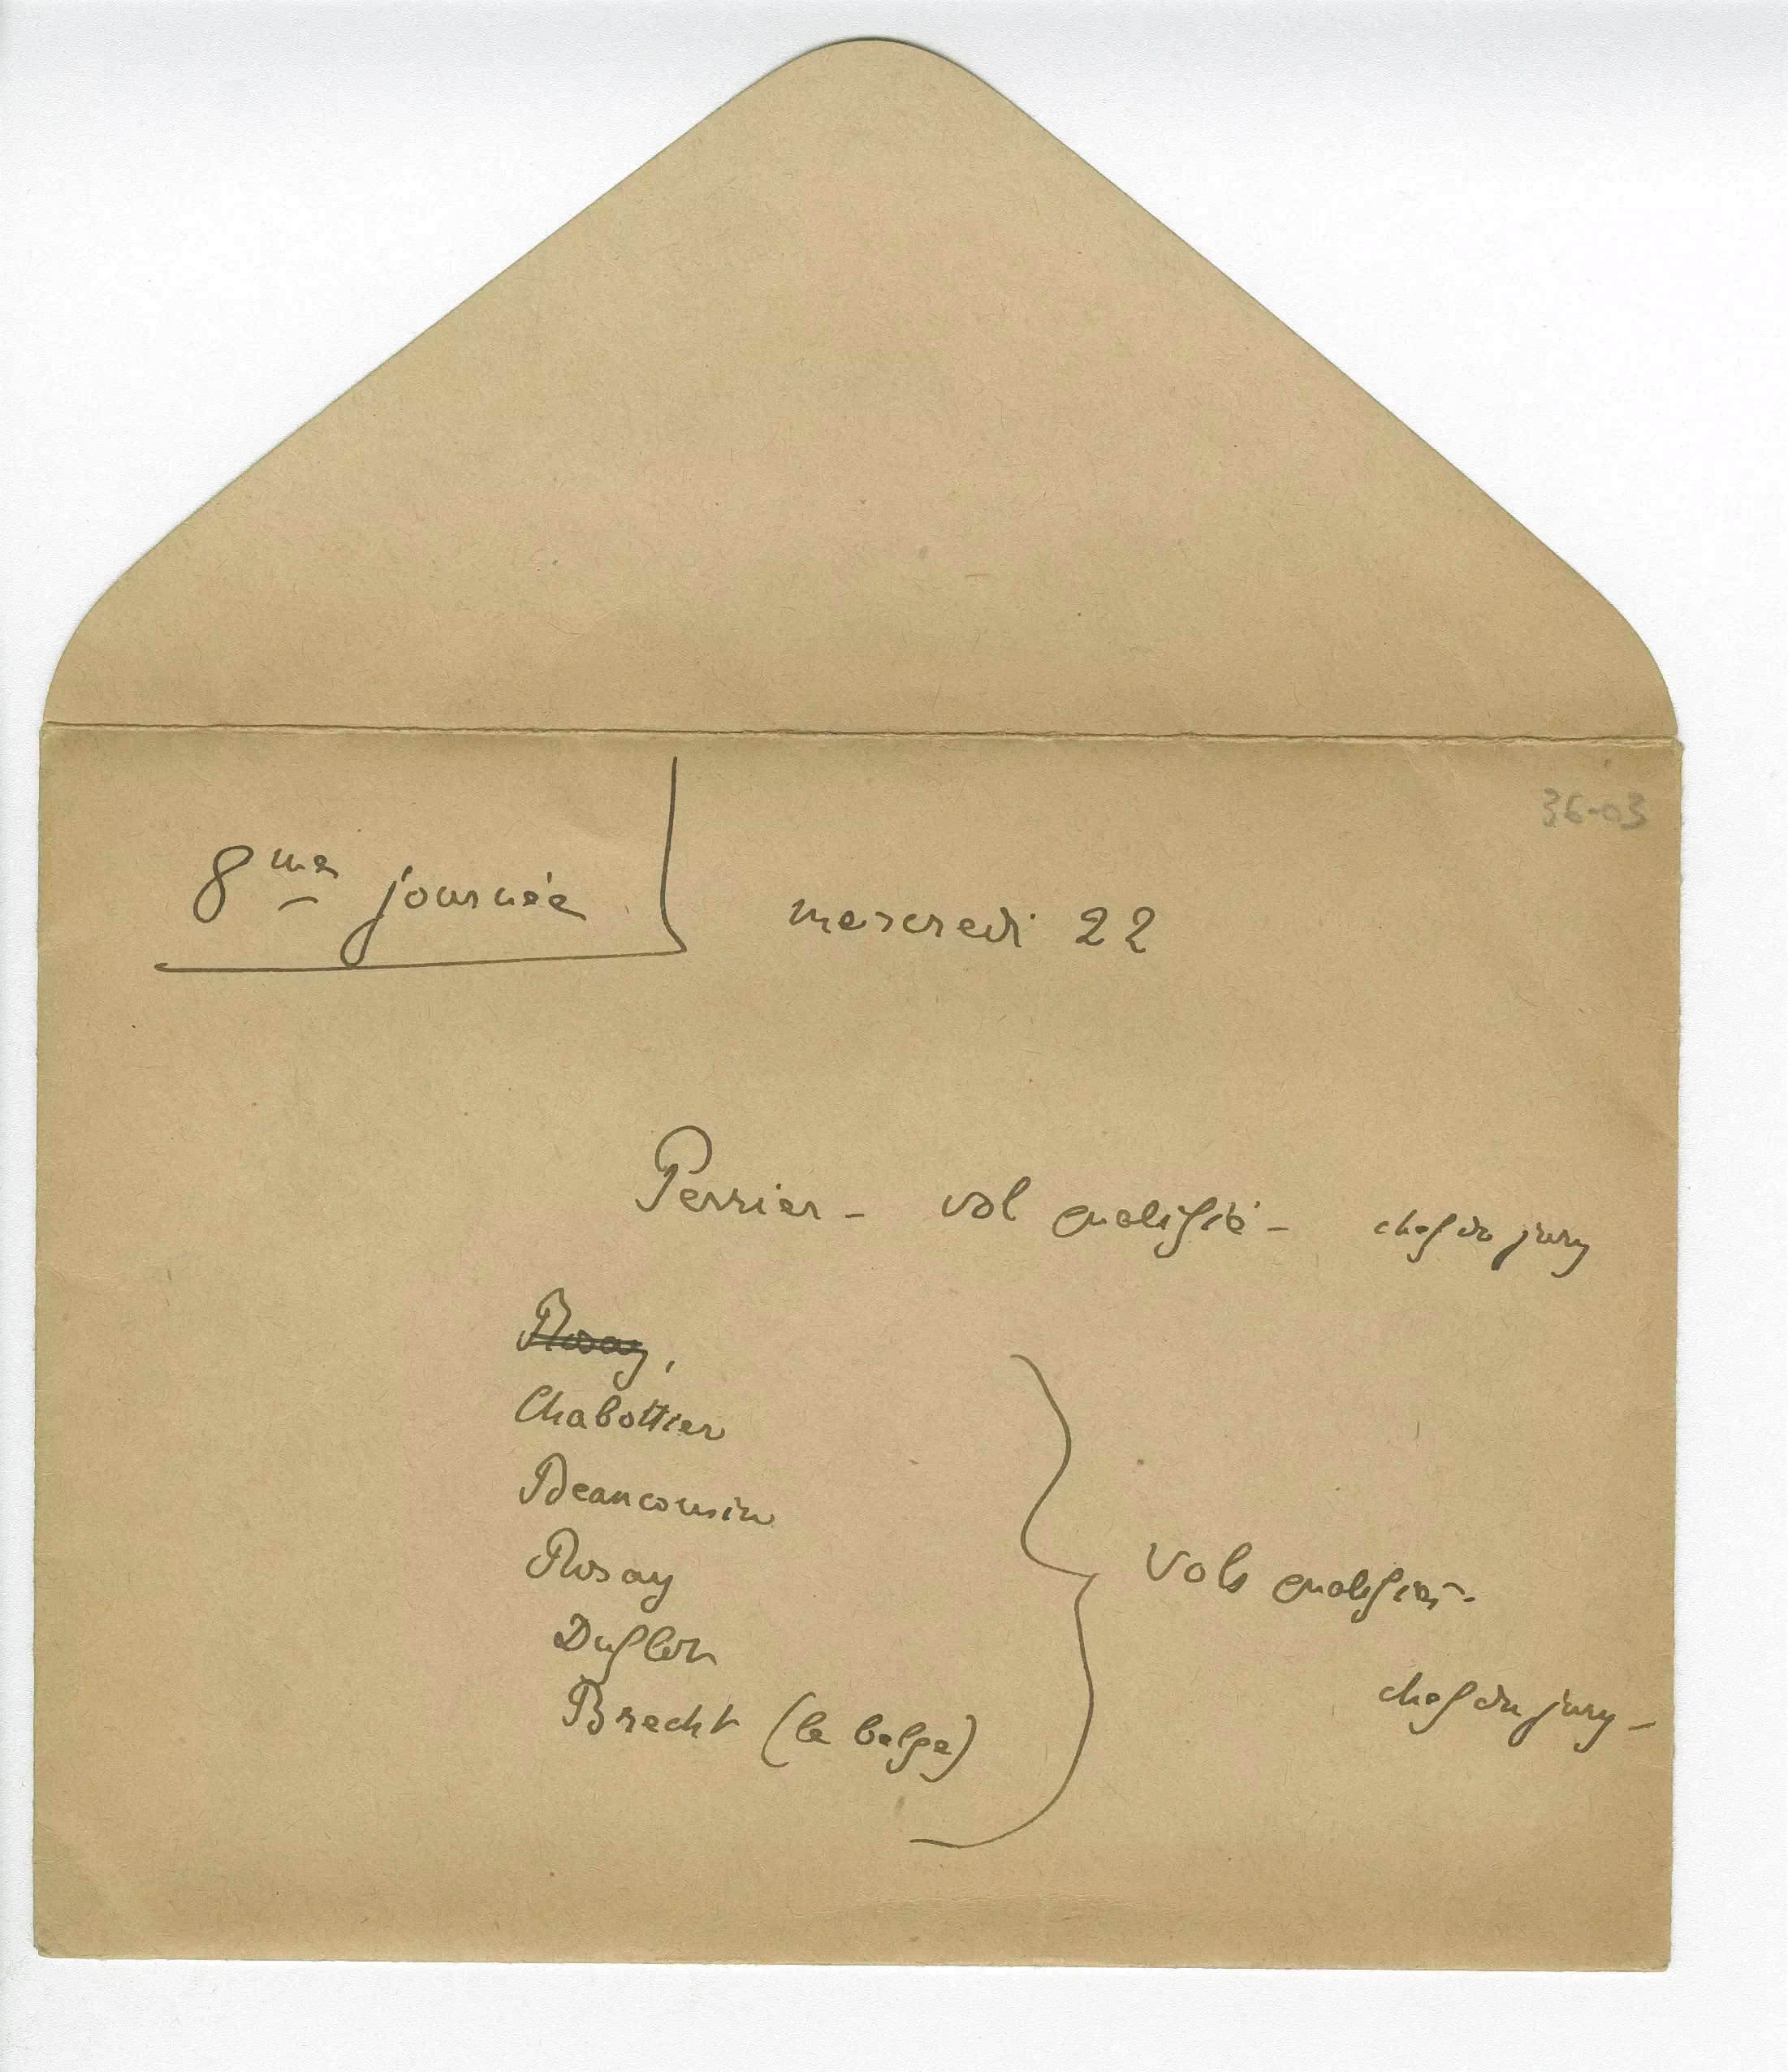 36-03
8me journée mercredi 22
Perrier - vol qualifié - chef du jury
Rosay,
Chabottier
Beaucousin
Rosay
Duflot
Brecht (le belge)
Vols qualifiés -
chef du jury -